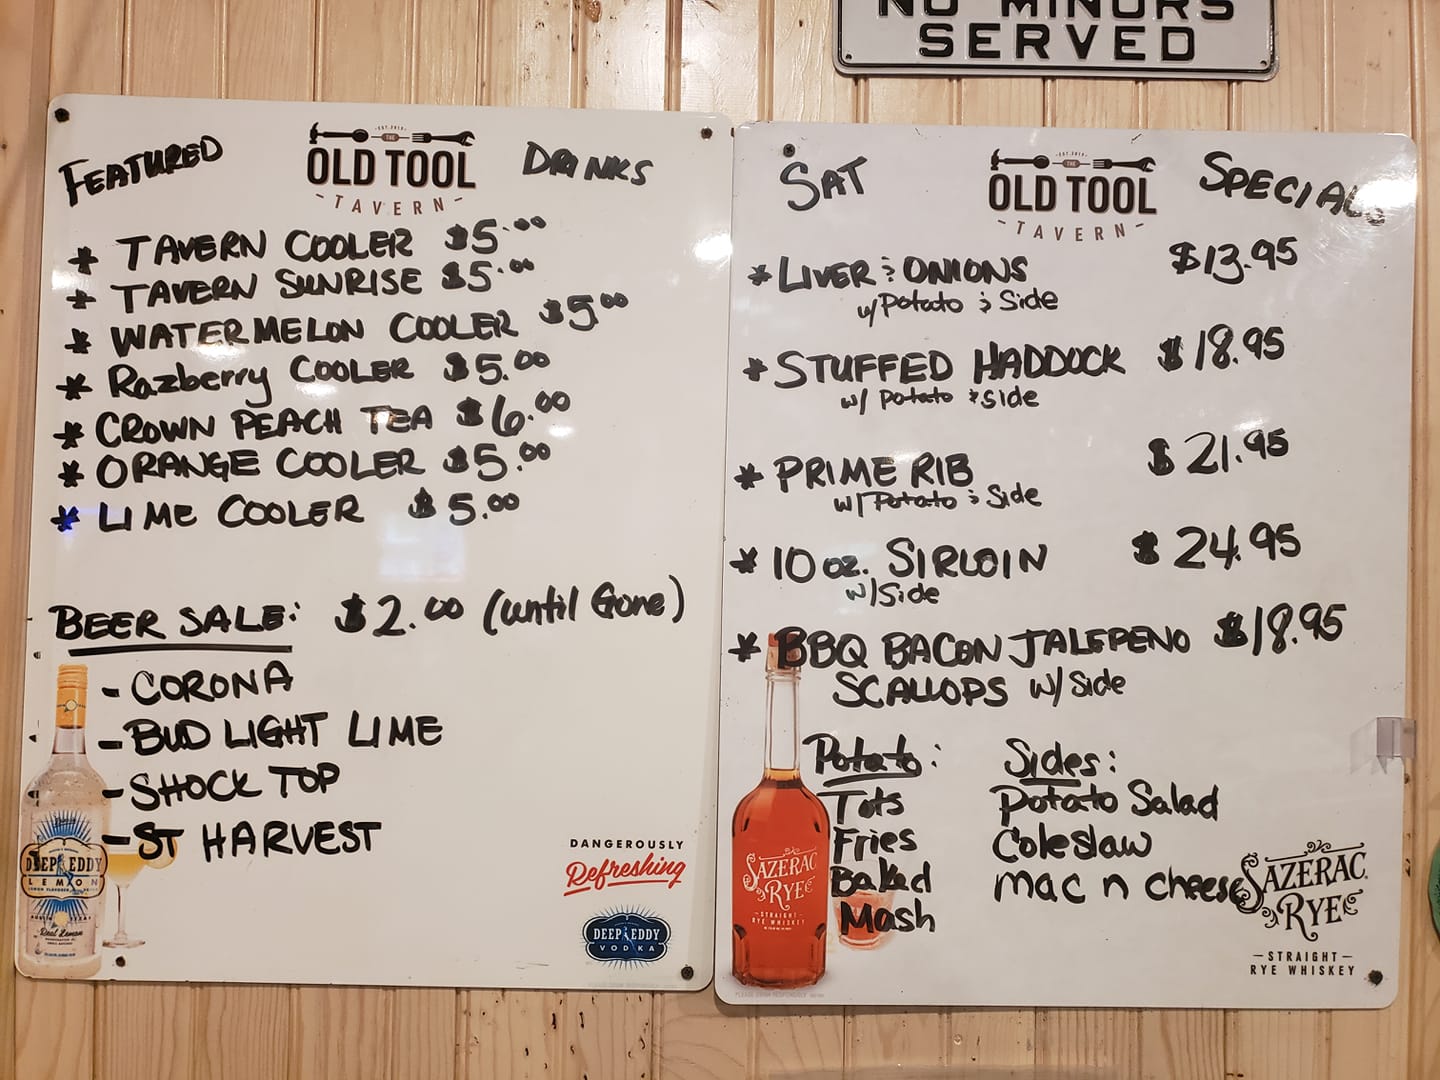 NO MINORS
SERVED
FEATURED DRINKS
EST. 2013
THE
OLD TOOL
TAVERN
* TAVERN COOLER $5.00
* TAVERN SUNRISE $5.00
* WATERMELON COOLER $5.00
* Razberry COOLER $5.00
* CROWN PEACH TEA $6.00
* ORANGE COOLER $5.00
* LIME COOLER $5.00
BEER SALE: $2.00 (until Gone)
- CORONA
- BUD LIGHT LIME
- SHOCK TOP
- ST HARVEST
DEEP EDDY
LEMON
LEMON FLAVORED VODKA
AUSTIN TEXAS
Real Lemon
DANGEROUSLY
Refreshing
DEEP EDDY
VODKA
SAT SPECIALS
THE
OLD TOOL
TAVERN
* LIVER & ONIONS $13.95
w/Potato & Side
* STUFFED HADDOCK $18.95
w/ Potato & side
* PRIME RIB $21.95
w/ Potato & Side
* 10 oz. SIRLOIN $24.95
w/Side
* BBQ BACON JALEPENO $18.95
SCALLOPS w/ Side
Potato:
Tots
Fries
Baked
Mash
Sides:
Potato Salad
Coleslaw
mac n cheese
SAZERAC
RYE
STRAIGHT
RYE WHISKEY
SAZERAC
RYE
—STRAIGHT—
RYE WHISKEY
PLEASE DRINK RESPONSIBLY